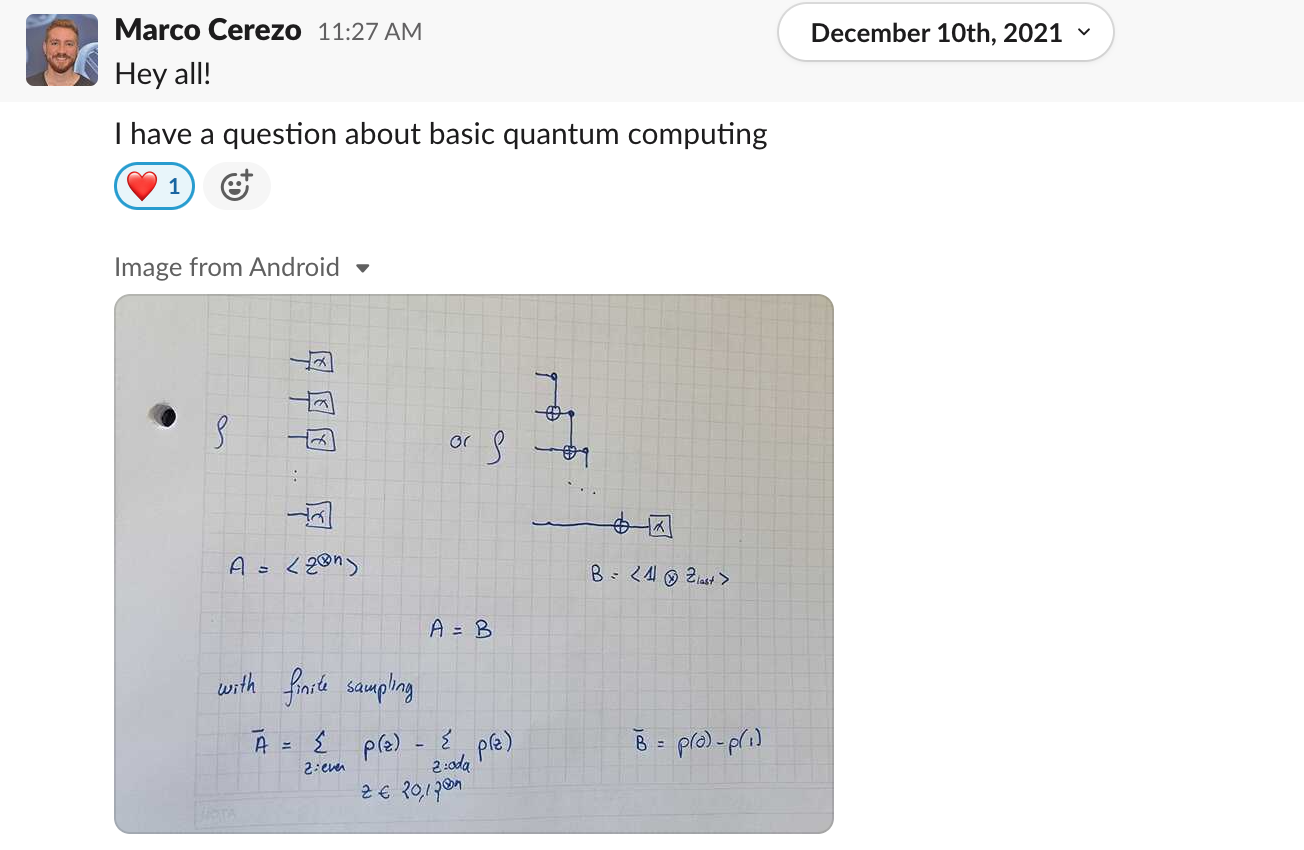 Marco Cerezo 11:27 AM
December 10th, 2021
Hey all!
I have a question about basic quantum computing
1
Image from Android
ρ
or ρ
A = <Z⊗n>
B = <1l ⊗ Zlast>
A = B
with finite sampling
Ā = Σ p(z) - Σ p(z)
z:even z:odd
z ∈ {0,1}⊗n
B̄ = p(0)-p(1)
NOTA